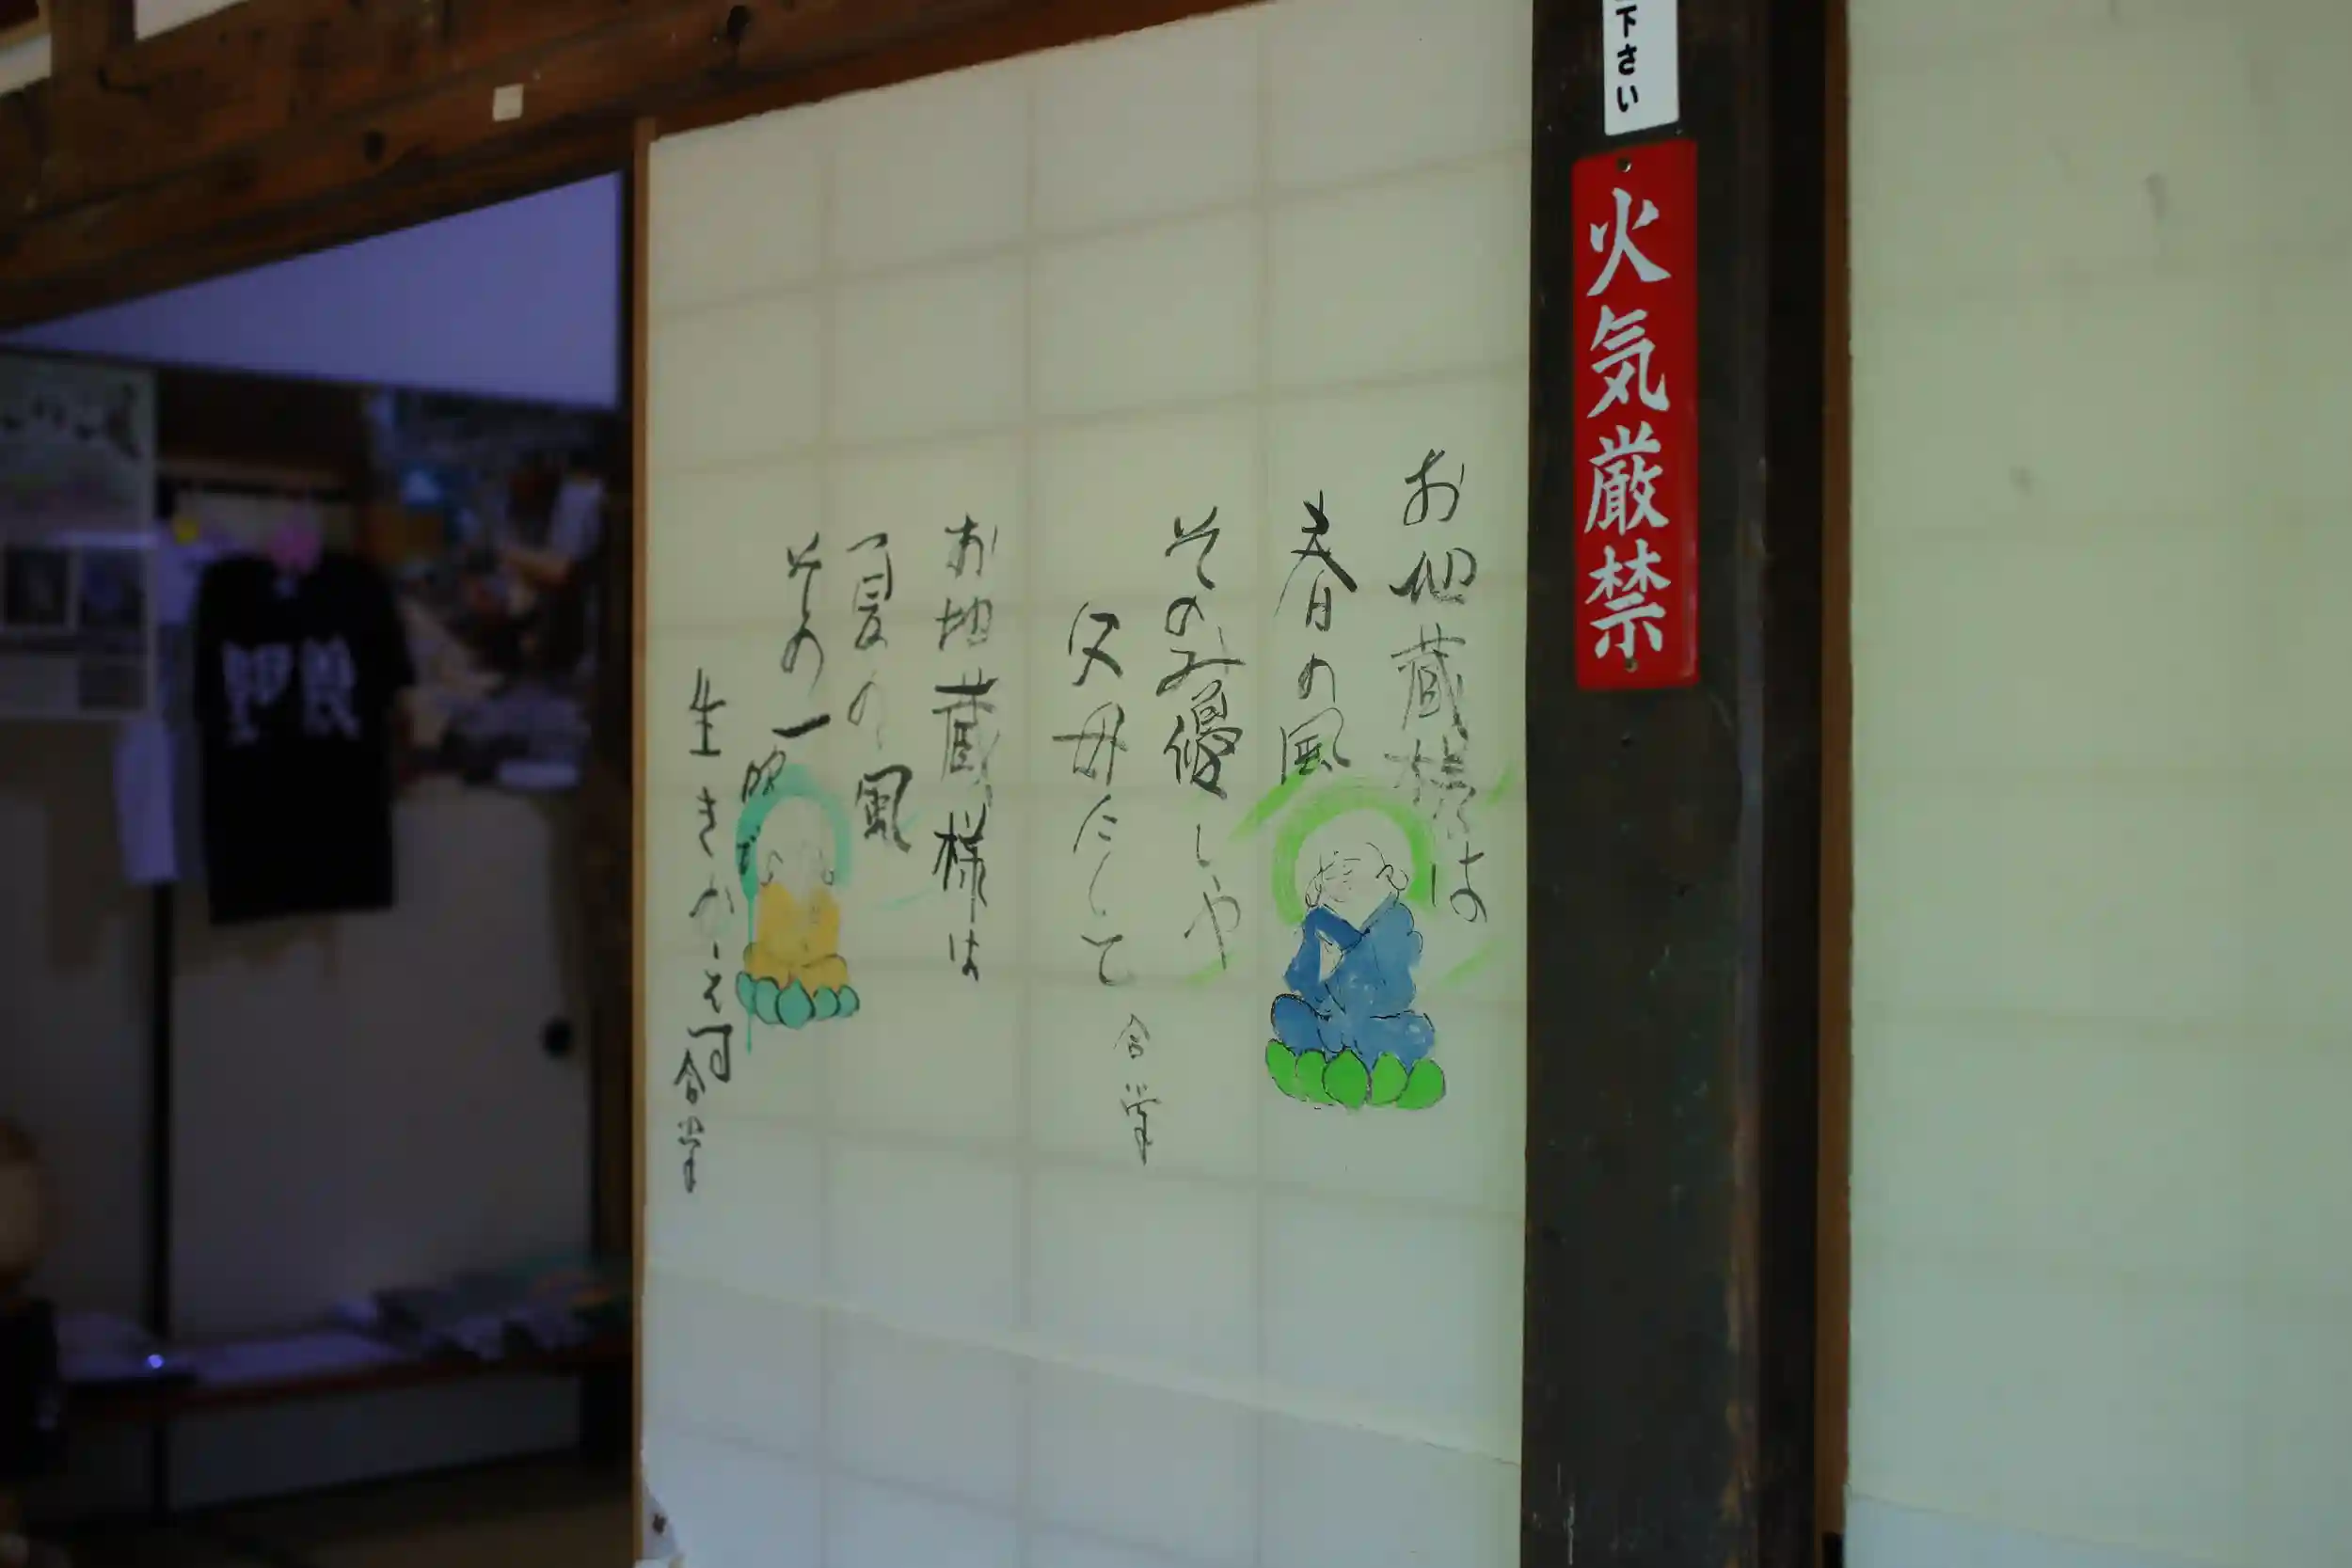 下さい
火気厳禁
お地蔵様は
春の風
そのみ優しや
父母にして
合掌
お地蔵様は
夏の風
その一
生き
合掌